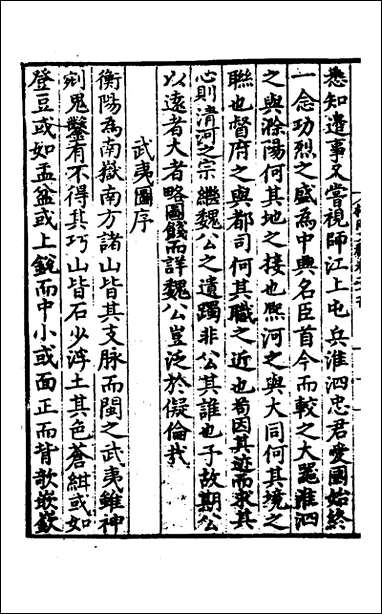 悉知邊事又嘗視師江上屯兵淮泗忠君愛國始終
一念功烈之盛為中興名臣首今而較之大 淮泗
之與滁陽何其地之接也熈河之與大同何其境之
聯也督府之與都司何其職之近也苟因其迹而求其
心則清河之宗繼魏公之遺躅非公其誰也予故期公
以遠者大者略圖餞而詳魏公豈泛於儗倫哉
武夷圖序
衡陽為南嶽南方諸山皆其支脉而閩之武夷雖神
剜鬼鑿有不得其巧山皆石少浮土其色蒼紺或如
登豆或如盂盆或上銳而中小或面正而背欹嵌欽